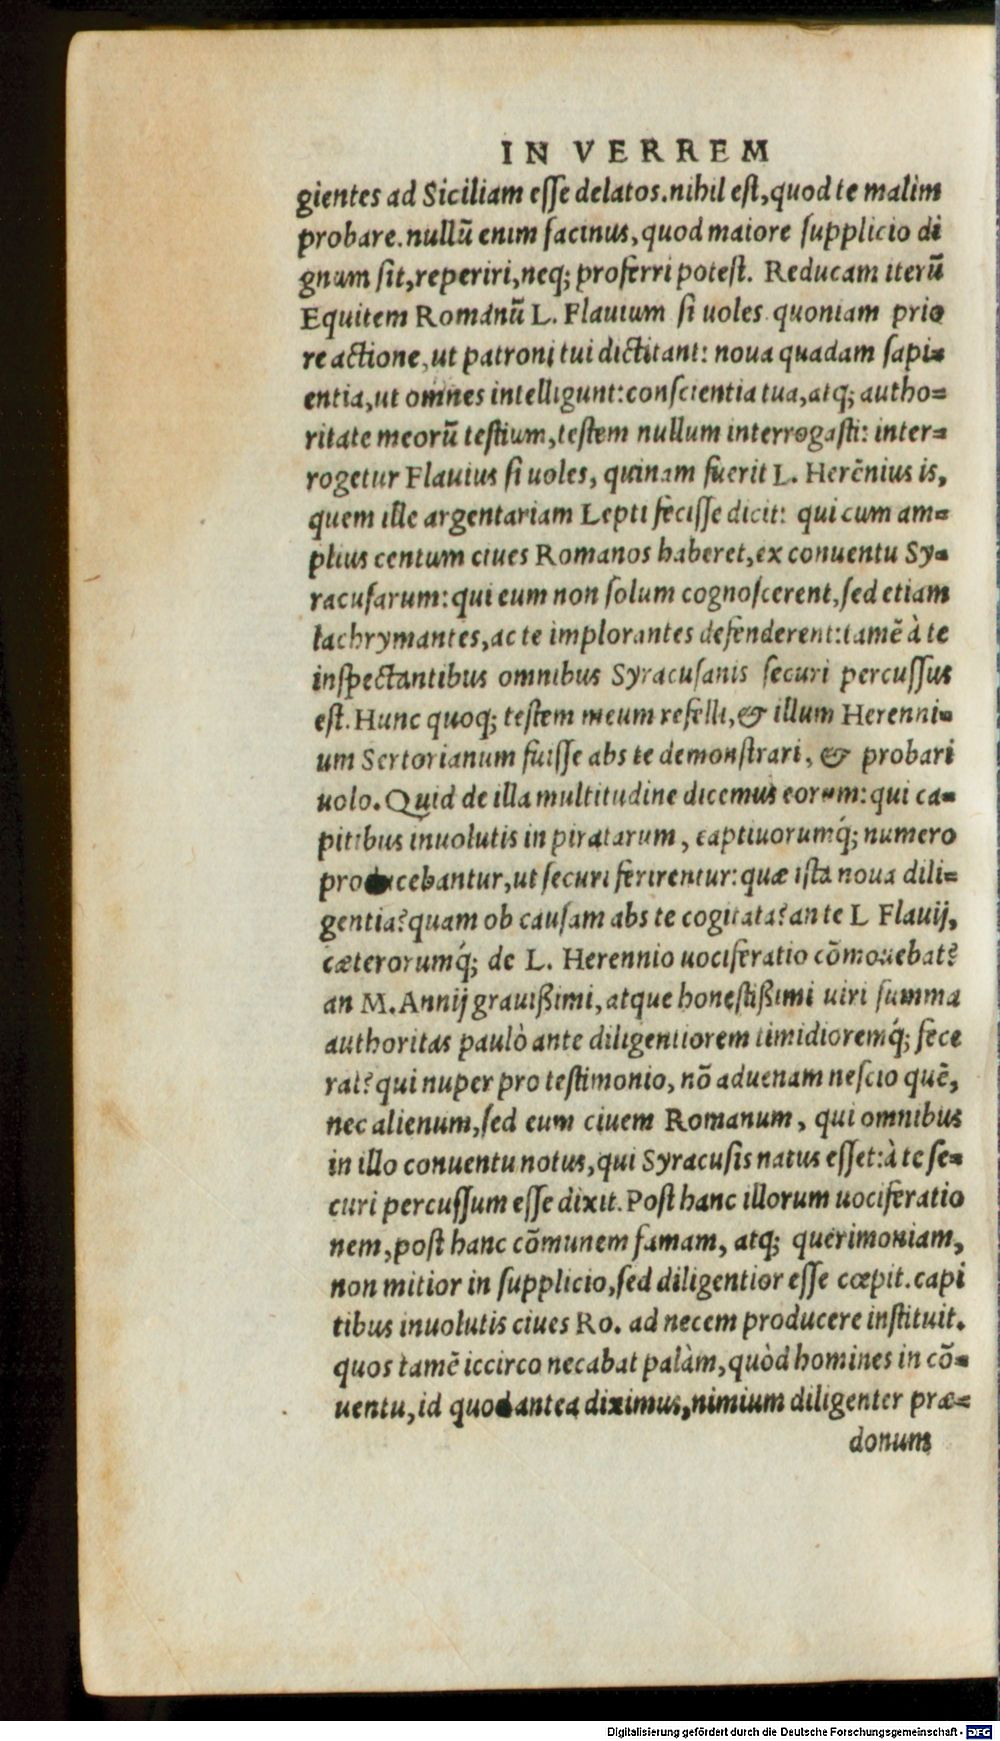 IN VERREM
gientes ad Siciliam esse delatos.nihil est,quod te malim
probare.nullū enim facinus,quod maiore supplicio di
gnum sit,reperiri,neq; proferri potest. Reducam iterū
Equitem Romanū L. Flauium si uoles quoniam prio
re actione,ut patroni tui dictitant: noua quadam sapi=
entia,ut omnes intelligunt:conscientia tua,atq; autho=
ritate meorū testium,testem nullum interrogasti: inter=
rogetur Flauius si uoles, quinam fuerit L. Herēnius is,
quem ille argentariam Lepti fecisse dicit: qui cum am=
plius centum ciues Romanos haberet,ex conuentu Sy=
racusarum:qui eum non solum cognoscerent,sed etiam
lachrymantes,ac te implorantes defenderent:tamē à te
inspectantibus omnibus Syracusanis securi percussus
est.Hunc quoq; testem meum refelli,& illum Herenni=
um Sertorianum fuisse abs te demonstrari, & probari
uolo. Quid de illa multitudine dicemus eorum:qui ca=
pitibus inuolutis in piratarum, captiuorumq́; numero
producebantur,ut securi ferirentur:quæ ista noua dili=
gentia?quam ob causam abs te cogitata?an te L Flauij,
cæterorumq́; de L. Herennio uociferatio cōmouebat?
an M.Annij grauißimi,atque honestißimi uiri summa
authoritas paulò ante diligentiorem timidioremq́; fece
rat?qui nuper pro testimonio, nō aduenam nescio quē,
nec alienum,sed eum ciuem Romanum, qui omnibus
in illo conuentu notus,qui Syracusis natus esset:à te se=
curi percussum esse dixit.Post hanc illorum uociferatio
nem,post hanc cōmunem famam, atq; querimoniam,
non mitior in supplicio,sed diligentior esse cœpit.capi
tibus inuolutis ciues Ro. ad necem producere instituit.
quos tamē iccirco necabat palàm,quòd homines in cō=
uentu,id quod antea diximus,nimium diligenter præ=
donum
Digitalisierung gefördert durch die Deutsche Forschungsgemeinschaft - DFG